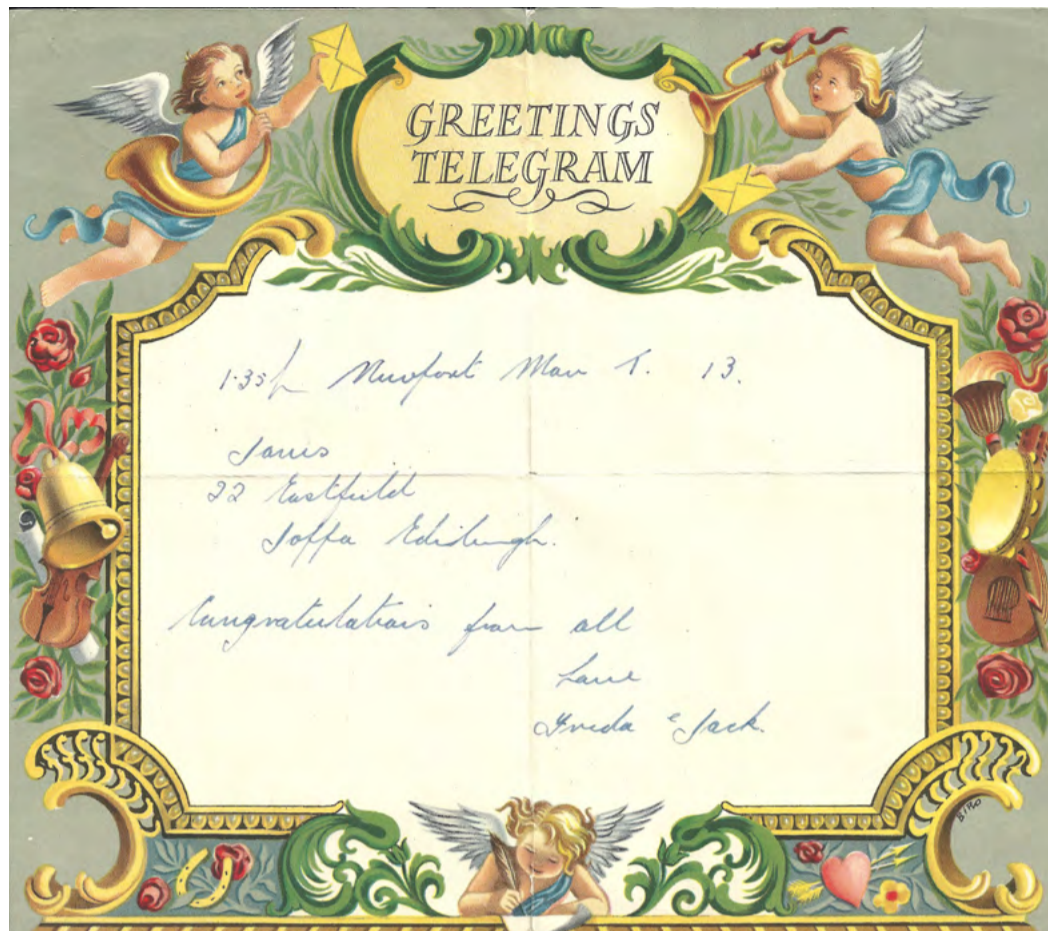 GREETINGS
TELEGRAM
1.35p Newport Mon T. 13.
22 Eastfield
Joppa Edinburgh.
Congratulations from all
Love
Freda & Jack.
BIRO